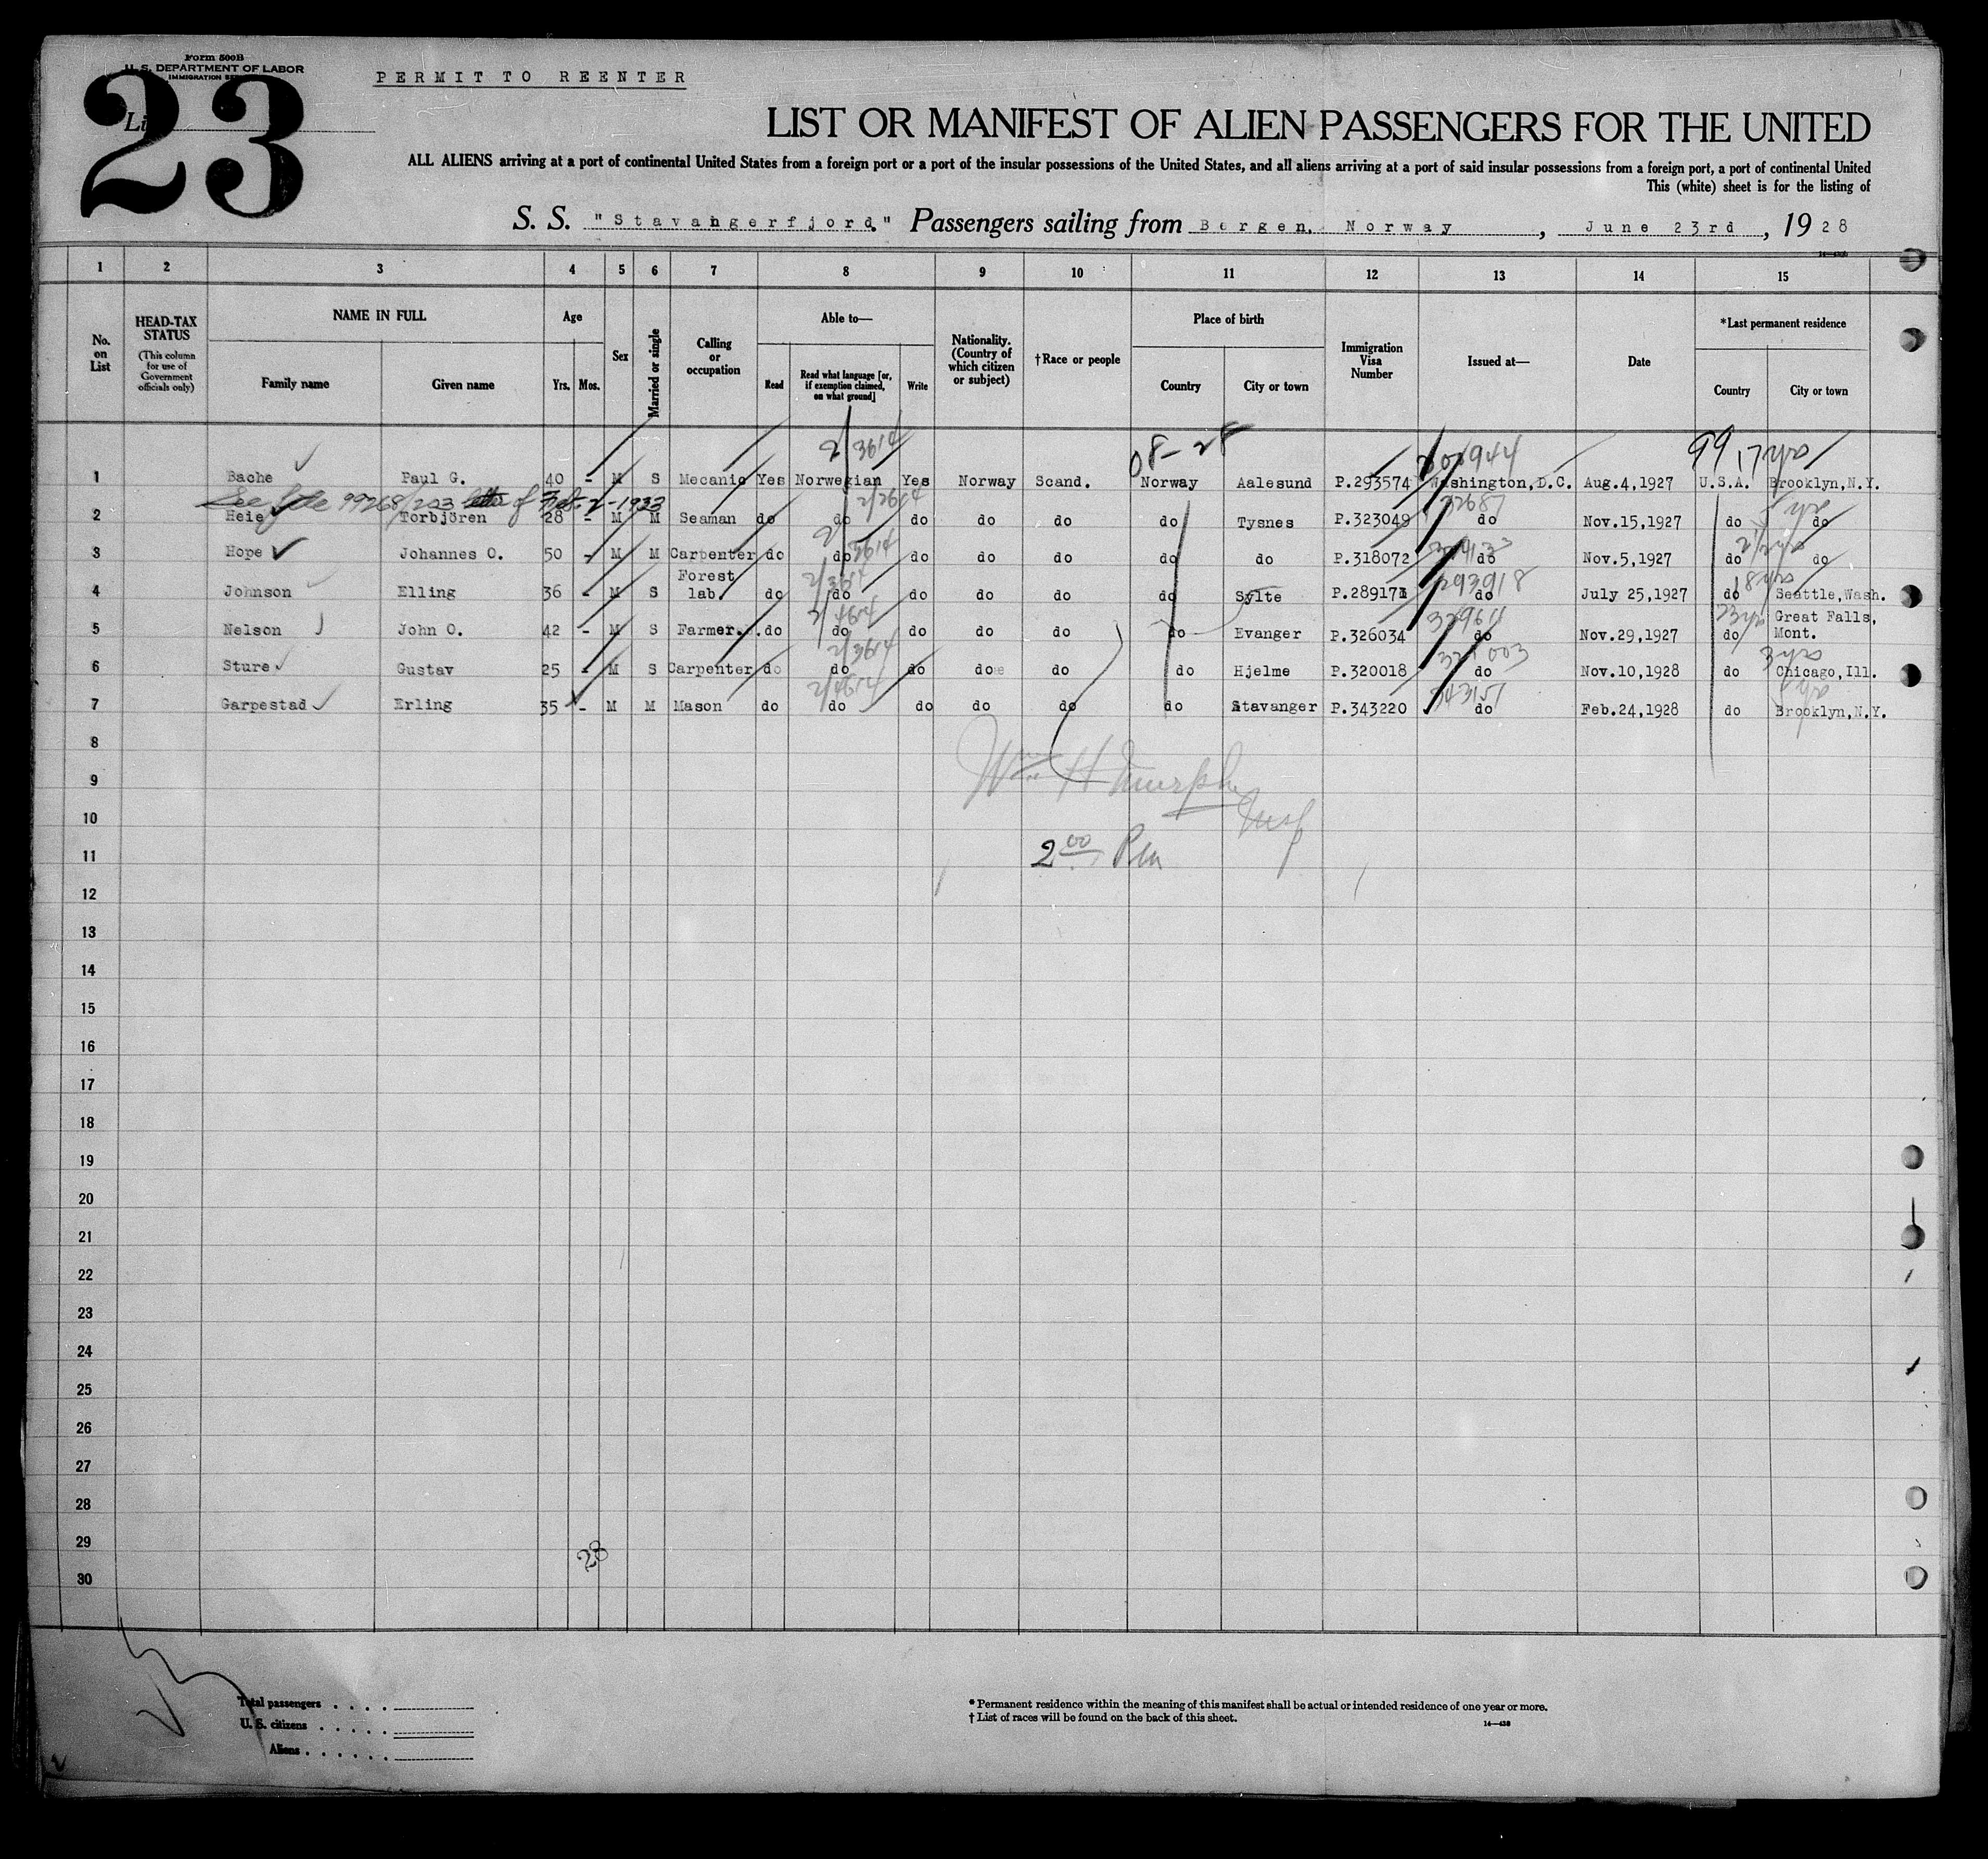 Form 500B
U. S. DEPARTMENT OF LABOR
IMMIGRATION
23
PERMIT TO REENTER
LIST OR MANIFEST OF ALIEN PASSENGERS FOR THE UNITED
ALL ALIENS arriving at a port of continental United States from a foreign port or a port of the insular possessions of the United States, and all aliens arriving at a port of said insular possessions from a foreign port, a port of continental United
This (white) sheet is for the listing of
S. S. "Stavangerfjord." Passengers sailing from Bergen, Norway, June 23rd, 1928
1 2 3 4 5 6 7 8 9 10 11 12 13 14 15
No. on List HEAD-TAX STATUS (This column for use of Government officials only) NAME IN FULL Family name Given name Age Yrs. Mos. Sex Married or single Calling or occupation Able to— Read Read what language [or, if exemption claimed, on what ground] Write Nationality. (Country of which citizen or subject) †Race or people Place of birth Country City or town Immigration Visa Number Issued at— Date *Last permanent residence Country City or town
2/3614 08-28 99
1 Bache Paul G. 40 - M S Mecanic Yes Norwegian Yes Norway Scand. Norway Aalesund P.293574 Washington,D.C. Aug.4,1927 U.S.A. Brooklyn,N.Y.
See file 99268/203 letter of Feb-2-1933
2 Heie Torbjören 28 - M M Seaman do do do do do do Tysnes P.323049 do Nov.15,1927 do do
3 Hope Johannes O. 50 - M M Carpenter do do do do do do do P.318072 do Nov.5,1927 do do
4 Johnson Elling 36 - M S Forest lab. do do do do do do Sylte P.289171 293918 do July 25,1927 do Seattle,Wash.
5 Nelson John O. 42 - M S Farmer. do do do do do do Evanger P.326034 do Nov.29,1927 do Great Falls, Mont.
6 Sture Gustav 25 - M S Carpenter do do do do do do Hjelme P.320018 do Nov.10,1928 do Chicago,Ill.
7 Garpestad Erling 35 - M M Mason do do do do do do Stavanger P.343220 do Feb.24,1928 do Brooklyn,N.Y.
8
9 Wm H Murphy
10 Insp
11 2 00 Pm
12
13
14
15
16
17
18
19
20
21
22
23
24
25
26
27
28
29 28
30
Total passengers
U. S. citizens
Aliens
* Permanent residence within the meaning of this manifest shall be actual or intended residence of one year or more.
† List of races will be found on the back of this sheet.
14—438